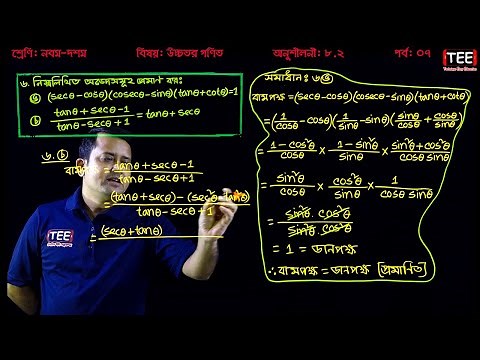 শ্রেণি: নবম-দশম
বিষয়: উচ্চতর গণিত
অনুশীলনী: ৮.২
পর্ব: ০৭
TEE
৬. নিম্নলিখিত অভেদসমূহ প্রমাণ কর:
ⓐ (secθ-cosθ)(cosecθ-sinθ)(tanθ+cotθ)=1
ⓑ (tanθ+secθ-1)/(tanθ-secθ+1) = tanθ+secθ
৬. ⓑ
বামপক্ষ = (tanθ+secθ-1)/(tanθ-secθ+1)
= ((tanθ+secθ)-(sec²θ-tan²θ))/(tanθ-secθ+1)
= (secθ+tanθ)
TEE
সমাধান: ৬ⓐ
বামপক্ষ = (secθ-cosθ)(cosecθ-sinθ)(tanθ+cotθ)
= (1/cosθ - cosθ)(1/sinθ - sinθ)(sinθ/cosθ + cosθ/sinθ)
= (1-cos²θ)/cosθ × (1-sin²θ)/sinθ × (sin²θ+cos²θ)/(cosθ sinθ)
= sin²θ/cosθ × cos²θ/sinθ × 1/(cosθ sinθ)
= (sin²θ·cos²θ)/(sin²θ·cos²θ)
= 1 = ডানপক্ষ
∴ বামপক্ষ = ডানপক্ষ [প্রমাণিত]